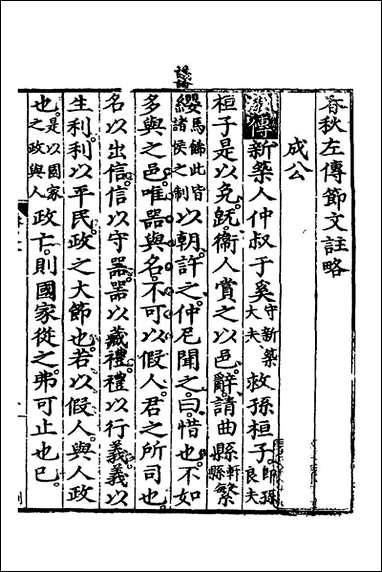 議論
春秋左傳節文註略
成公
傳新築人仲叔于奚守新築大夫救孫桓子即孫良夫
桓子是以免旣衛人賞之以邑辭請曲縣軒縣繁
纓馬飾此皆諸侯之制以朝許之仲尼聞之曰惜也不如
多與之邑唯器與名不可以假人君之所司也
名以出信信以守器器以藏禮禮以行義義以
生利利以平民政之大節也若以假人與人政
也是以國家之政與人政亡則國家從之弗可止也已